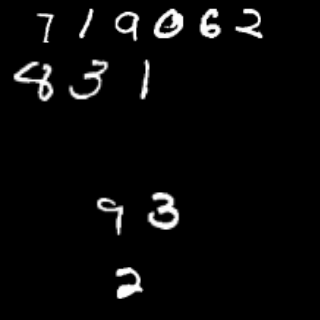 719062
831
93
2